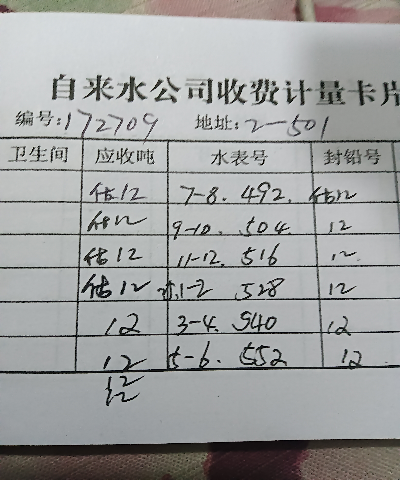 自来水公司收费计量卡片
编号:172709 地址:2-501
卫生间 应收吨 水表号 封铅号
估12 7-8. 492. 估12
估12 9-10. 504. 12
估12 11-12. 516 12
估12 1-2 528 12
12 3-4. 540 12
12 5-6. 552 12
12